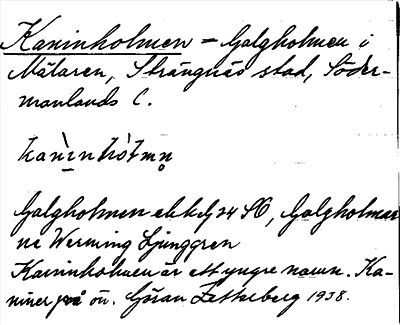 Kaninholmen – Galgholmen i
Mälaren, Strängnäs stad, Söder-
manlands l.
kanìnhólmn̥
Galgholmen ek kdj 24 SO, Galgholmar
na Werming Ljunggren
Kaninholmen är ett yngre namn. Ka-
niner på ön. Göran Zetterberg 1938.